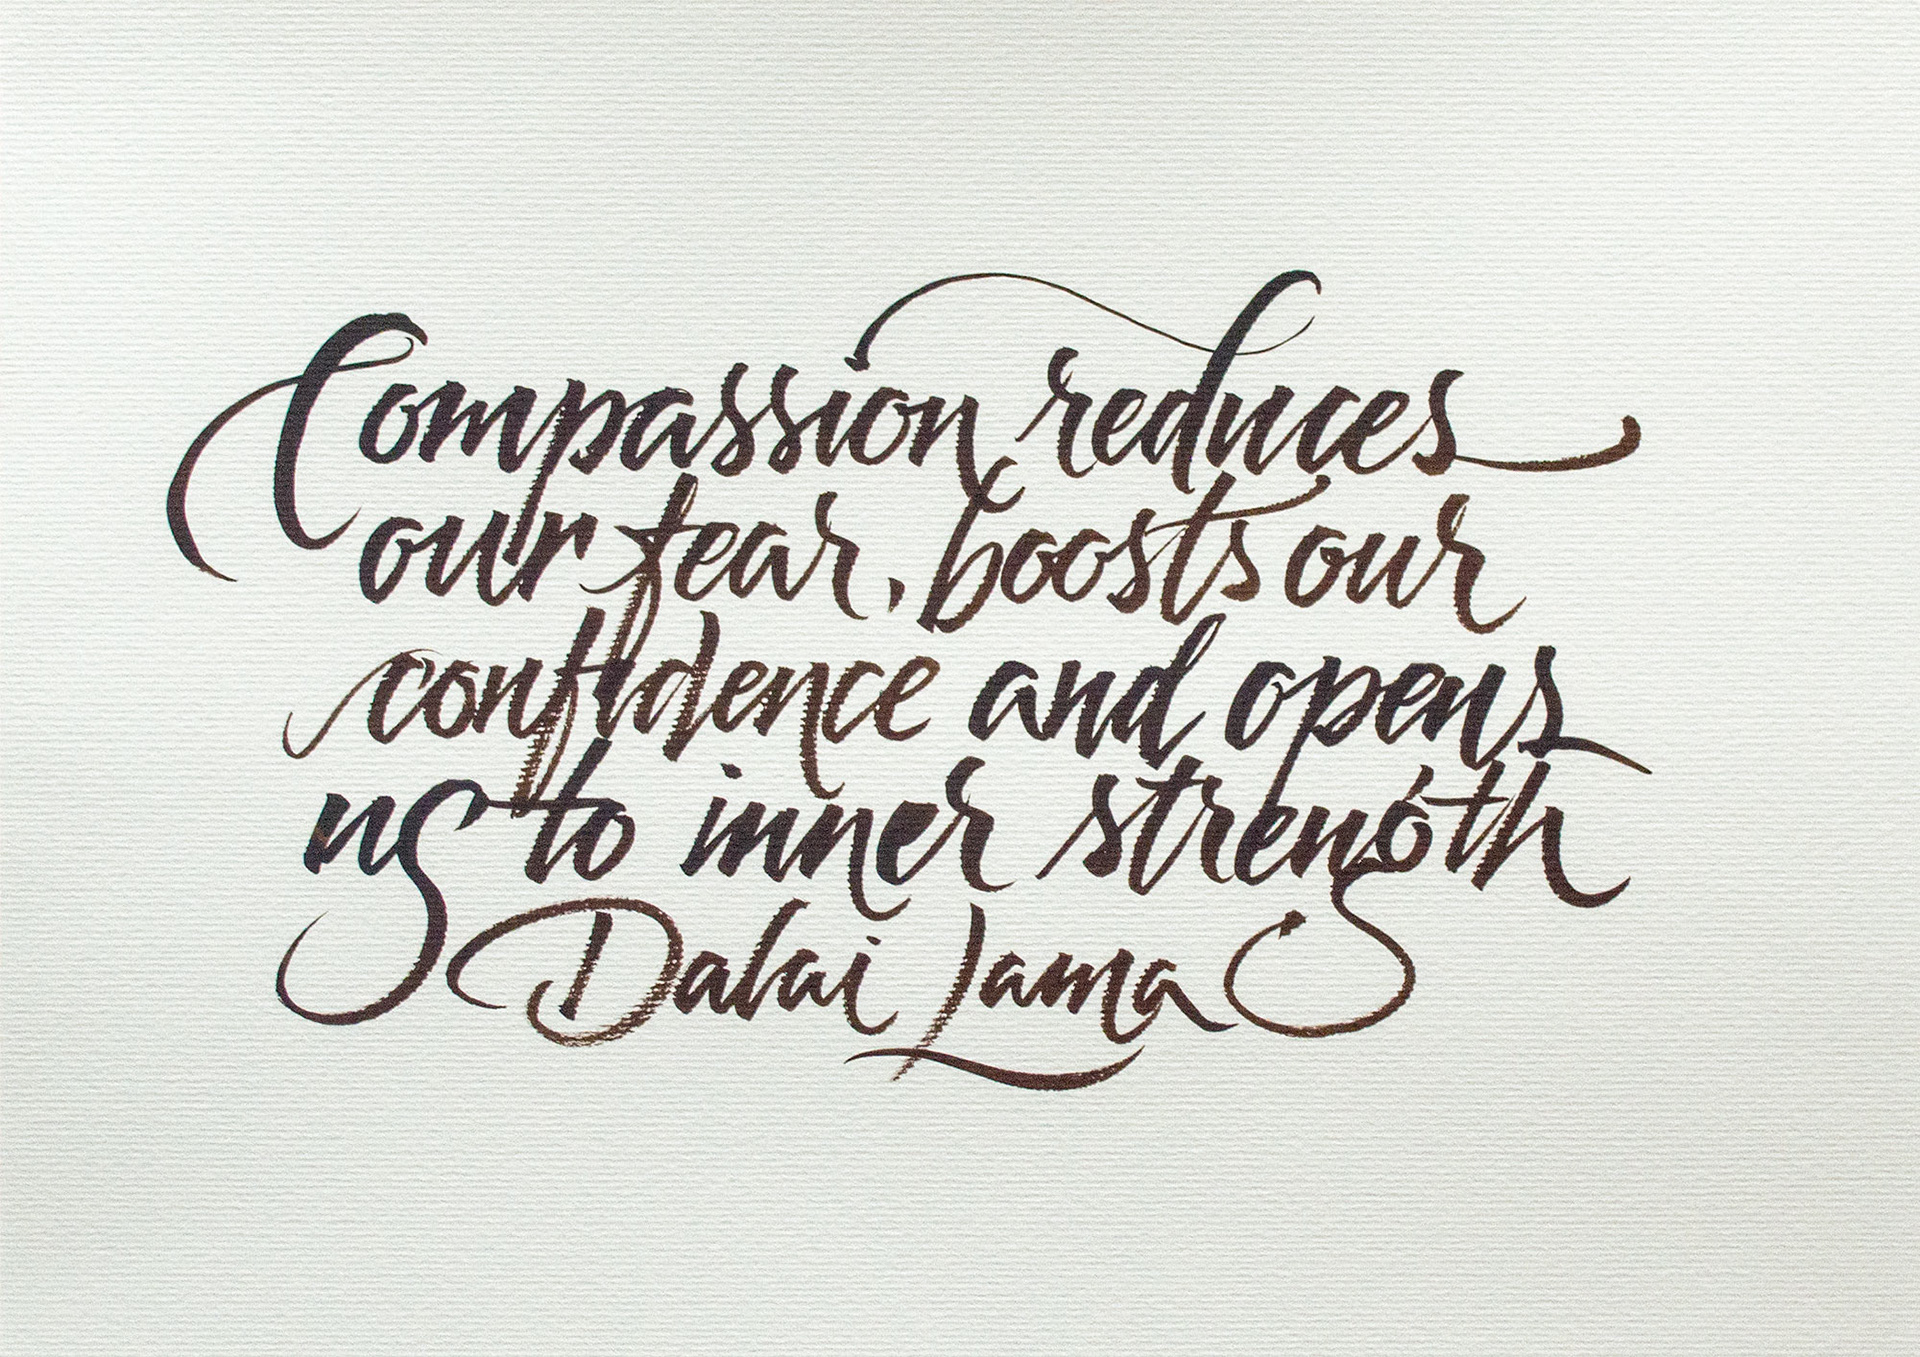 Compassion reduces
our fear, boosts our
confidence and opens
us to inner strength
Dalai Lama